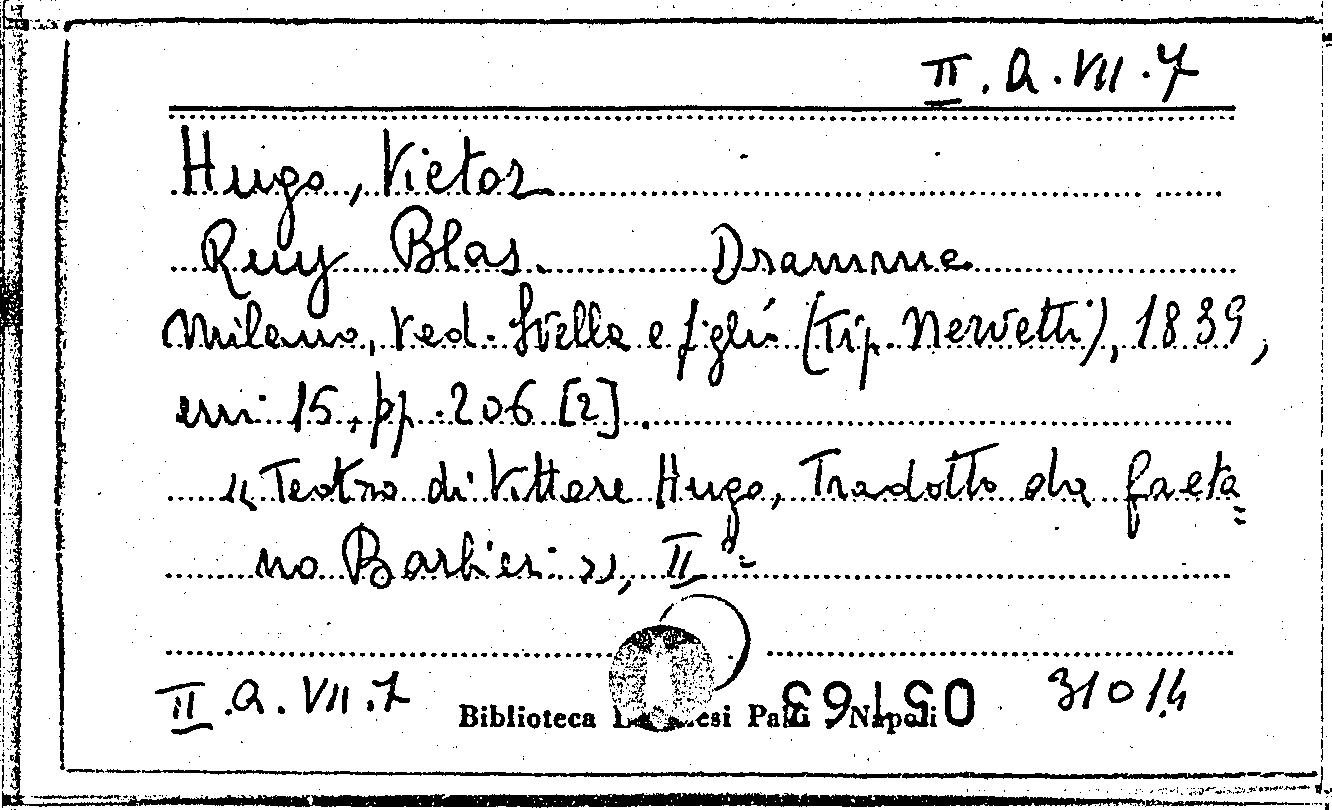 II.a.VII.7
Hugo, Victor
Ruy Blas. Dramme
Milano, Ved. Stella e figli (Tip. Nervetti), 1839,
cm. 15, pp. 206 [2].
«Teatro di Vittore Hugo, Tradotto da Gaeta=
no Barbieri», IIº
II.a.VII.7
Biblioteca Napoli
31014